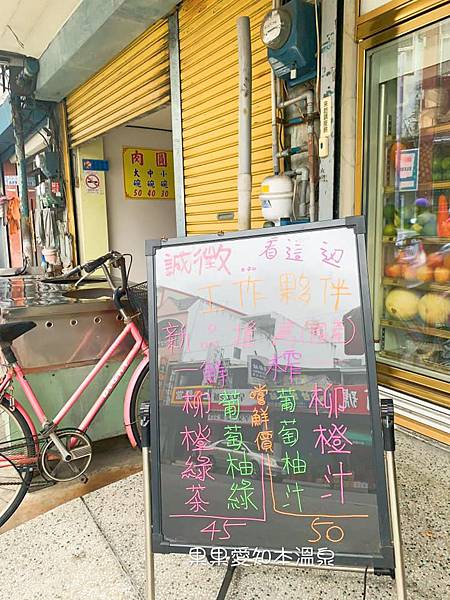 肉圓
大碗 50
中碗 40
小碗 30
誠徵... 看這邊
工作夥伴
新品推薦
鮮榨
柳橙汁
葡萄柚汁
50
嘗鮮價
葡萄柚綠
柳橙綠茶
45
果果愛如本溫泉